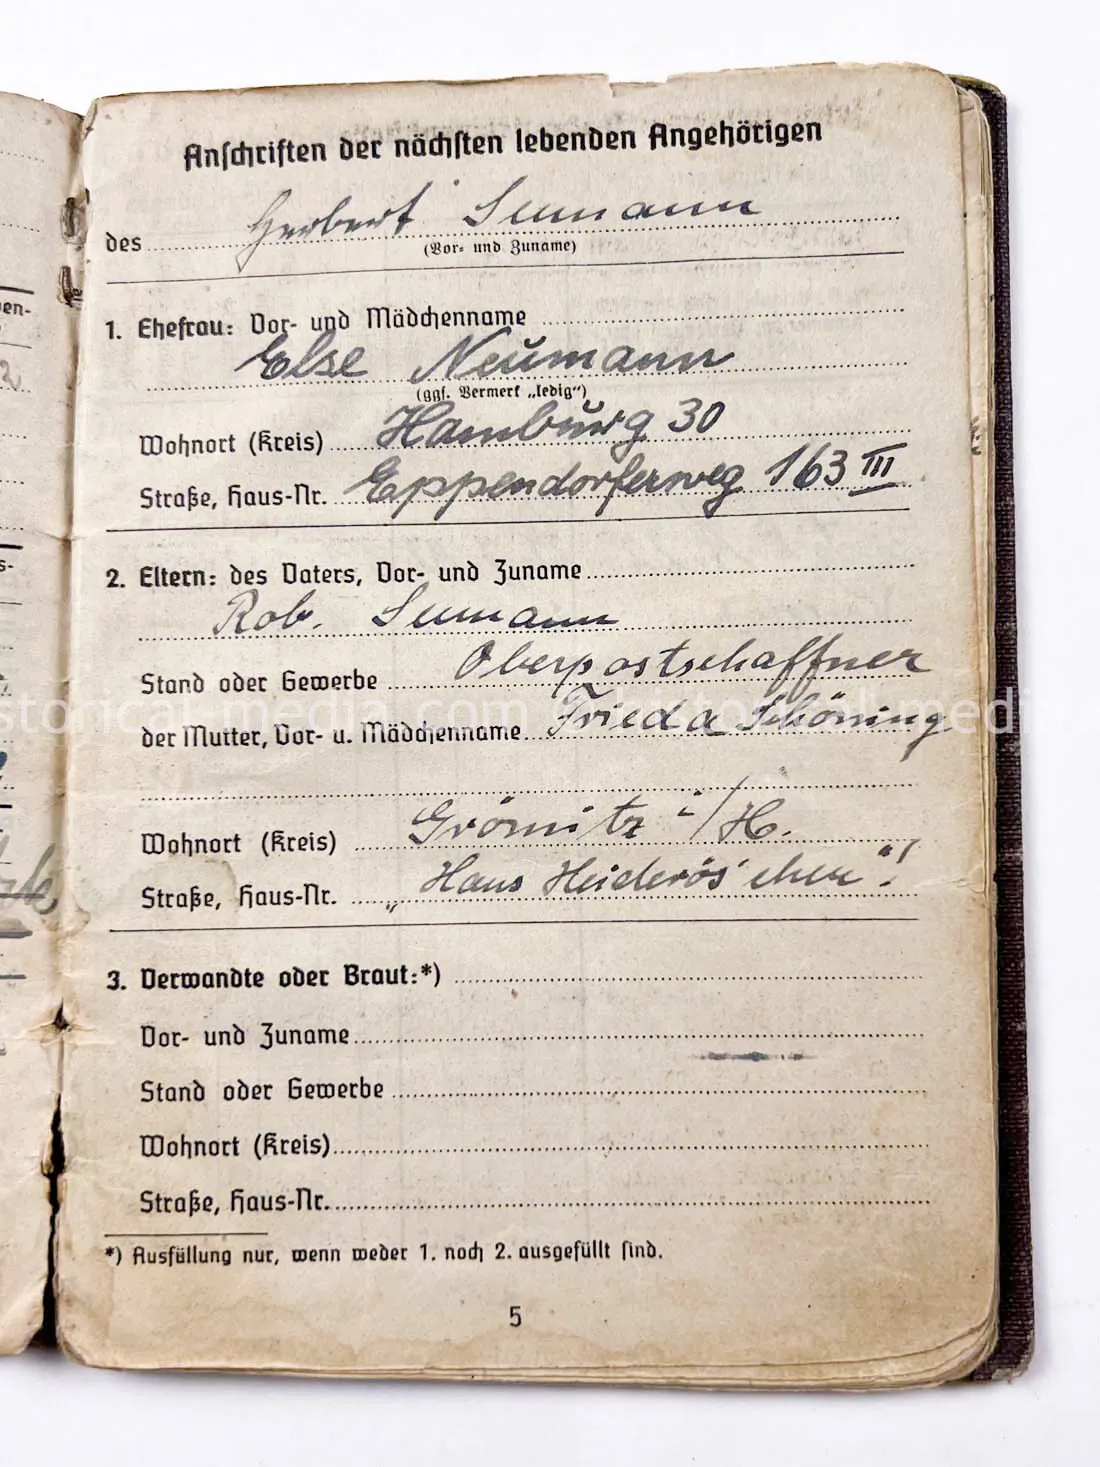 Anschriften der nächsten lebenden Angehörigen
des Herbert Seemann
(Vor- und Zuname)
1. Ehefrau: Vor- und Mädchenname
Else Neumann
(ggf. Vermerk „ledig“)
Wohnort (Kreis) Hamburg 30
Straße, Haus-Nr. Eppendorferweg 163 III
2. Eltern: des Vaters, Vor- und Zuname
Rob. Seemann
Stand oder Gewerbe Oberpostschaffner
der Mutter, Vor- u. Mädchenname Frieda Schöning
Wohnort (Kreis) Grömitz i/H.
Straße, Haus-Nr. „Haus Heiderös'chen“!
3. Verwandte oder Braut:*)
Vor- und Zuname
Stand oder Gewerbe
Wohnort (Kreis)
Straße, Haus-Nr.
*) Ausfüllung nur, wenn weder 1. noch 2. ausgefüllt sind.
5